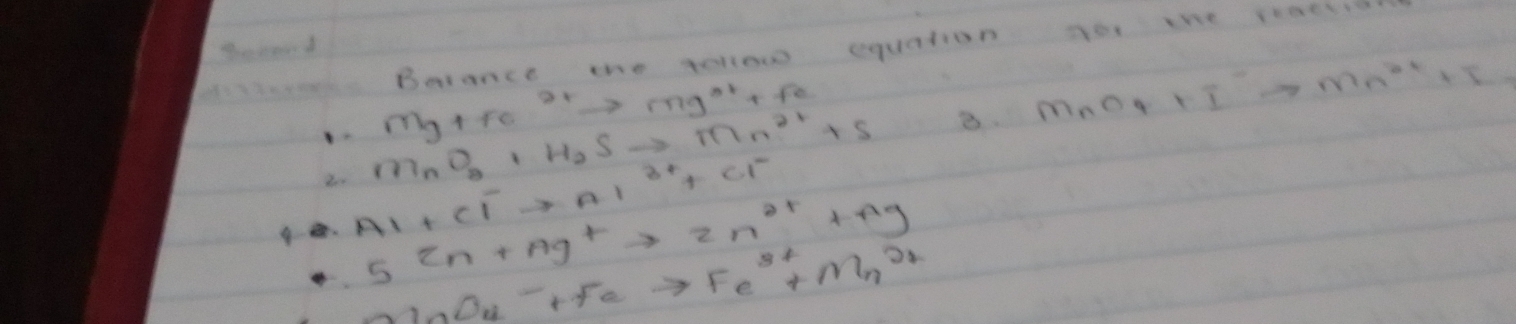 Second
Balance the follow equation for the reactions
1. Mg + Fe²⁺ → Mg²⁺ + Fe
2. MnO₂ + H₂S → Mn²⁺ + S 3. MnO₄ + I⁻ → Mn²⁺ + I
4. Al + Cl⁻ → Al³⁺ + Cl⁻
5 Zn + Ag⁺ → Zn²⁺ + Ag
MnO₄⁻ + Fe → Fe³⁺ + Mn²⁺